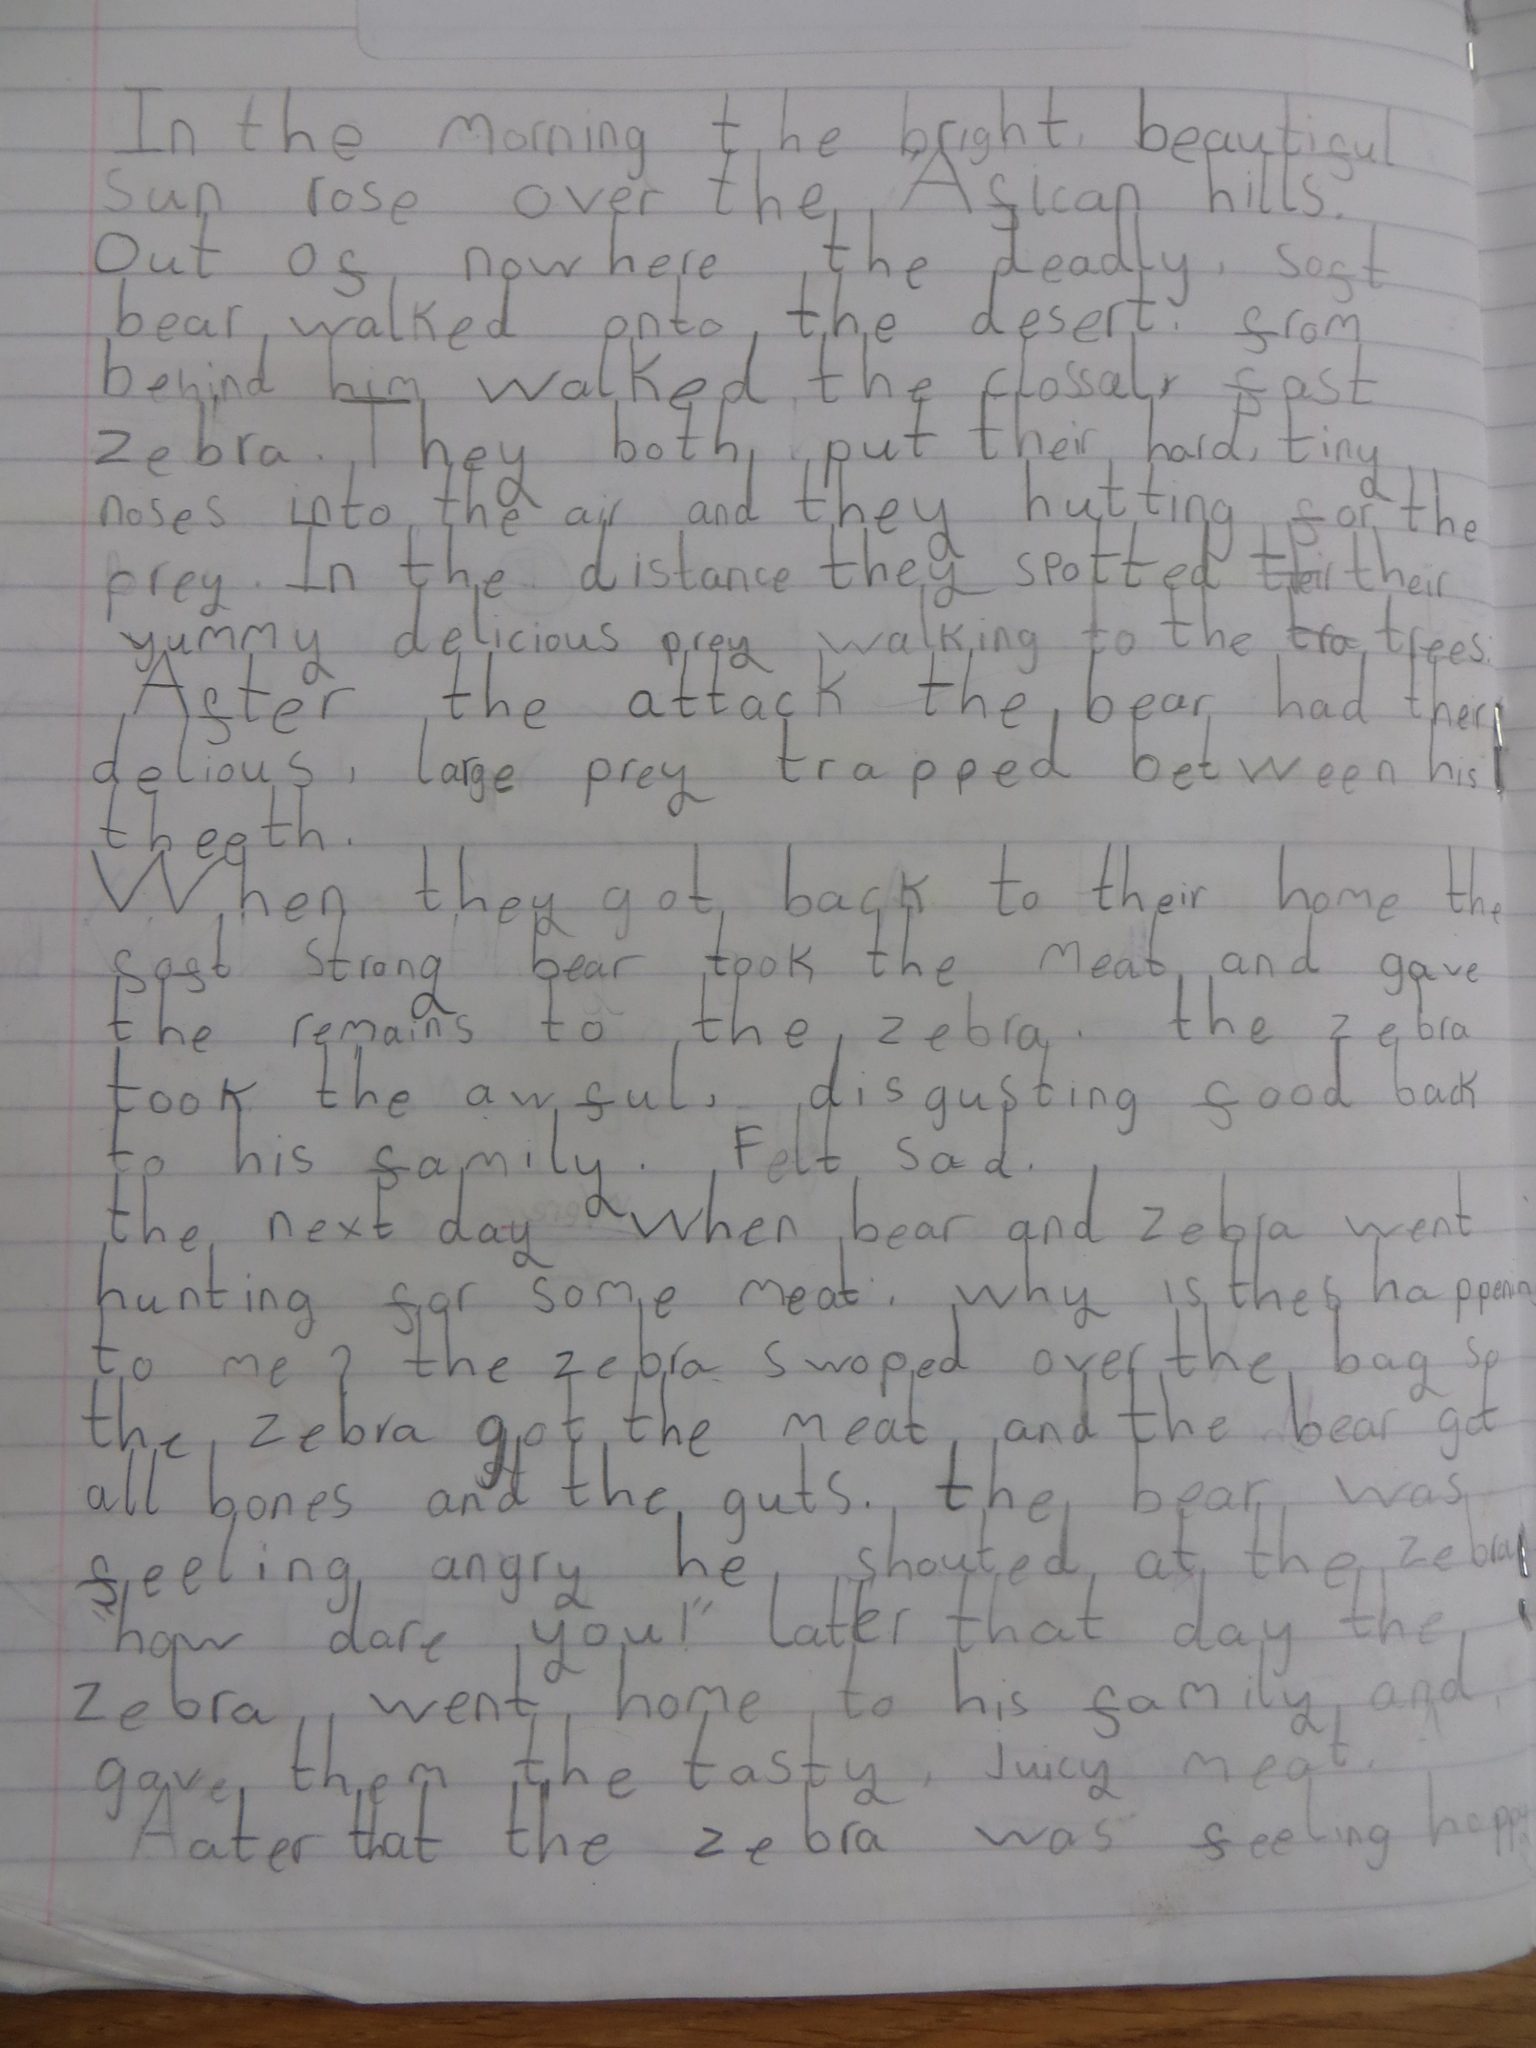 In the morning the bright, beautiful
sun rose over the Afican hills.
Out of nowhere the deadly, soft
bear walked onto the desert. from
behind him walked the clossal, fast
zebra. They both put their hard, tiny
noses into the air and they hutting for the
prey. In the distance they spotted their their
yummy delicious prey walking to the tra trees.
After the attack the bear had their
delious, large prey trapped between his
theeth.
When they got back to their home the
soft strong bear took the meat and gave
the remains to the zebra. the zebra
took the awful, disgusting food back
to his family. Felt sad.
the next day when bear and zebra went
hunting for some meat. why is thes happening
to me? the zebra swoped over the bag so
the zebra got the meat and the bear got
all bones and the guts. the bear was
feeling angry he shouted at the zebra
"how dare you!" later that day the
zebra went home to his family and
gave them the tasty, Juicy meat.
Aater that the zebra was feeling happy